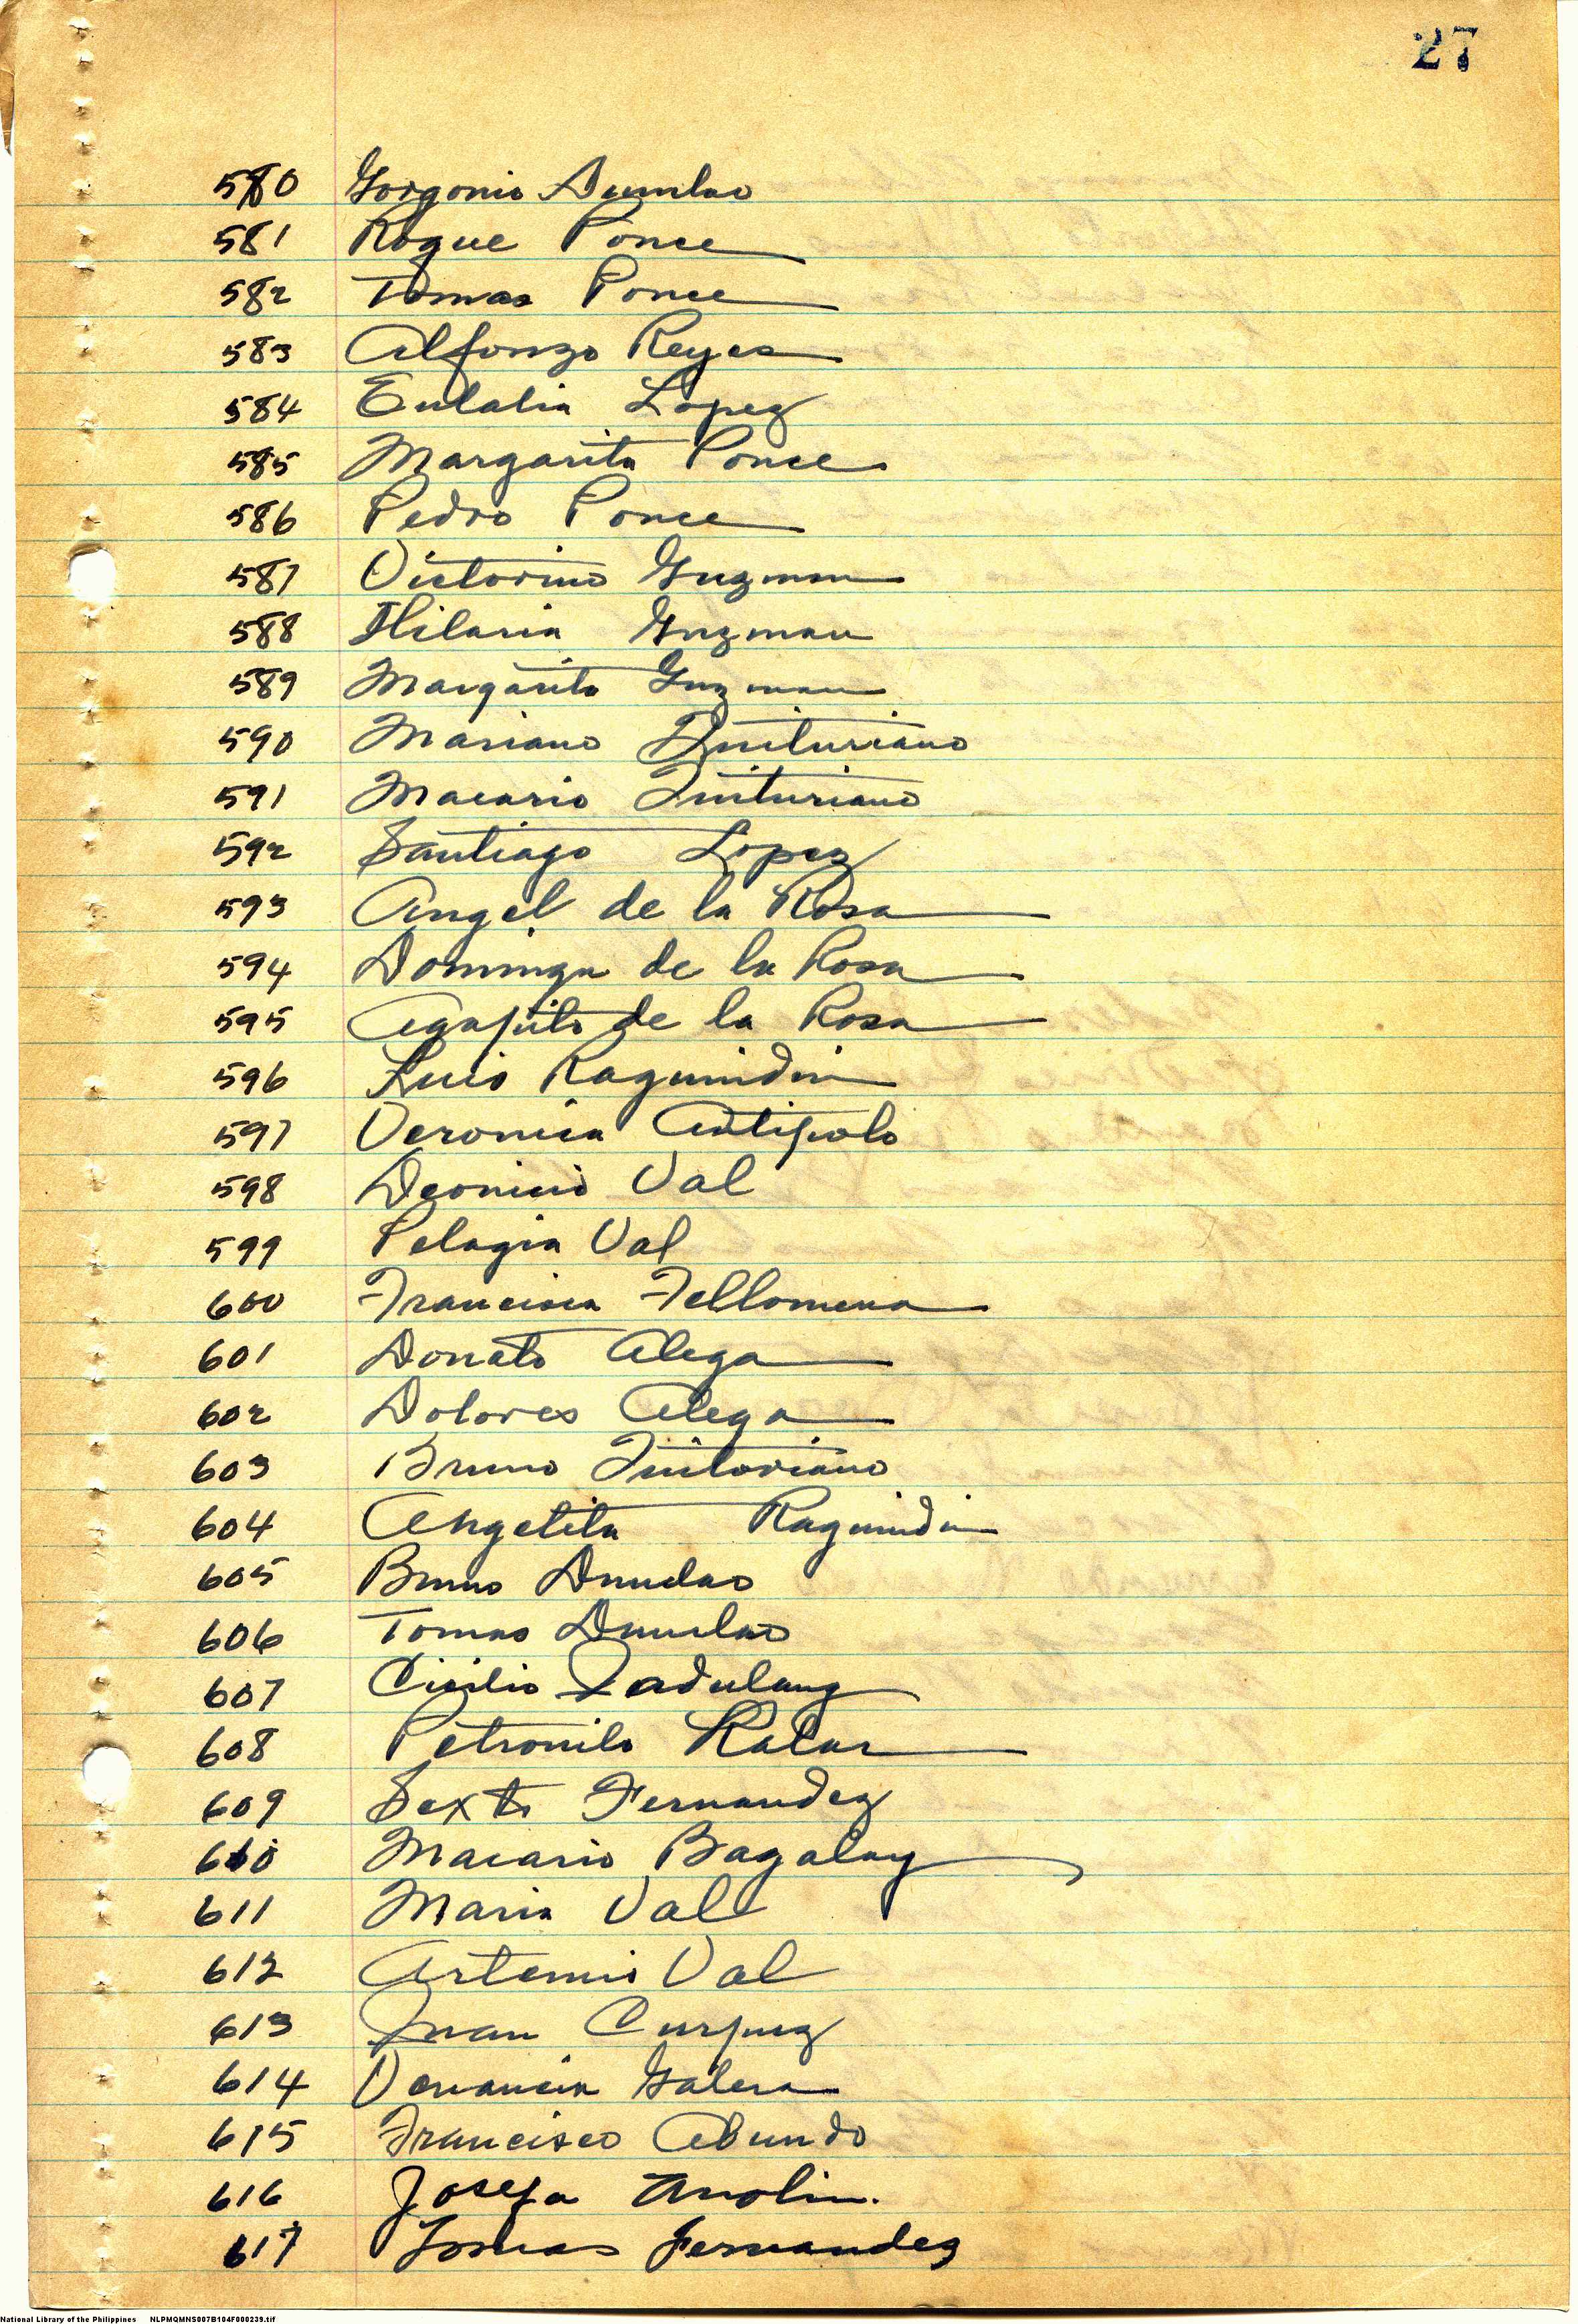 27
580 Gorgonio Dumlao
581 Roque Ponce
582 Tomas Ponce
583 Alfonzo Reyes
584 Eulalia Lopez
585 Margarita Ponce
586 Pedro Ponce
587 Victorino Guzman
588 Hilaria Guzman
589 Margarito Guzman
590 Mariano Quituriano
591 Macario Quituriano
592 Santiago Lopez
593 Angel de la Rosa
594 Dominga de la Rosa
595 Agapito de la Rosa
596 Luis Ragunidin
597 Veronica Antipolo
598 Deonicio Val
599 Pelagia Val
600 Francisca Fellomena
601 Donato Alega
602 Dolores Alega
603 Bruno Quitoriano
604 Angelita Ragunidin
605 Bruno Dumlao
606 Tomas Dumlao
607 Cicilio Zadulang
608 Petronilo
609 Sexto Fernandez
610 Macario Bagalay
611 Maria Val
612 Artemio Val
613 Juan Curpuz
614 Venancia Galera
615 Francisco Abundo
616 Josefa Anolin.
617 Tomas Fernandez
National Library of the Philippines NLPMQMNS007B104F000239.tif